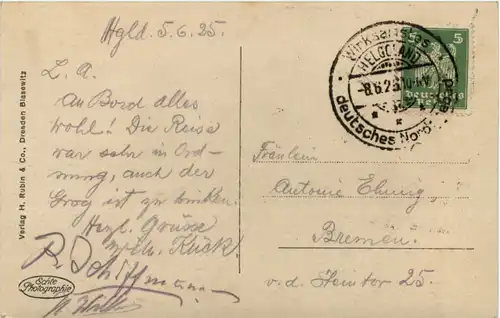 Hgld. 5.6.25.
L. A.
An Bord alles
wohl! Die Reise
war sehr in Ord-
nung, auch der
Grog ist zu trinken.
Herzl. Grüsse
Wilh. Kück!
R. Schiffmann
Verlag H. Rubin & Co., Dresden Blasewitz
Echte
Photographie
Wirksamstes
HELGOLAND
-8.6.25.
deutsches Nord
5
Deutsches
Fräulein
Antonie
Bremen.
v. d. Steintor 25.